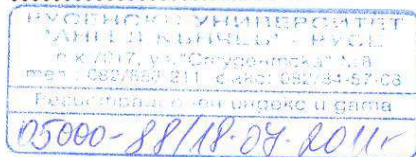 РУСЕНСКИ УНИВЕРСИТЕТ
"АНГЕЛ КЪНЧЕВ" - РУСЕ
п.к. 7017, ул. "Студентска" №8
тел.: 082/887 211 факс: 082/84-57-08
Регистрационен индекс и дата
05000-88/18.07.2011г